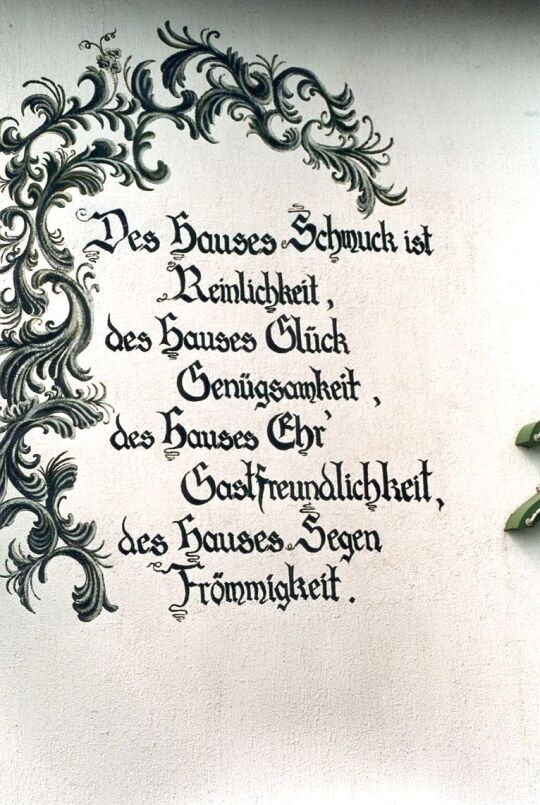 Des Hauses Schmuck ist
Reinlichkeit,
des Hauses Glück
Genügsamkeit,
des Hauses Ehr'
Gastfreundlichkeit,
des Hauses Segen
Frömmigkeit.